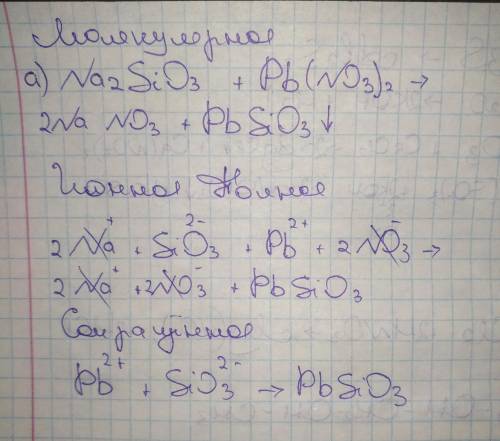 Молекулярное
а) Na2SiO3 + Pb(NO3)2 →
2Na NO3 + PbSiO3↓
Ионное Полное
2Na⁺ + SiO3²⁻ + Pb²⁺ + 2NO3⁻ →
2Na⁺ + 2NO3⁻ + PbSiO3
Сокращённое
Pb²⁺ + SiO3²⁻ → PbSiO3